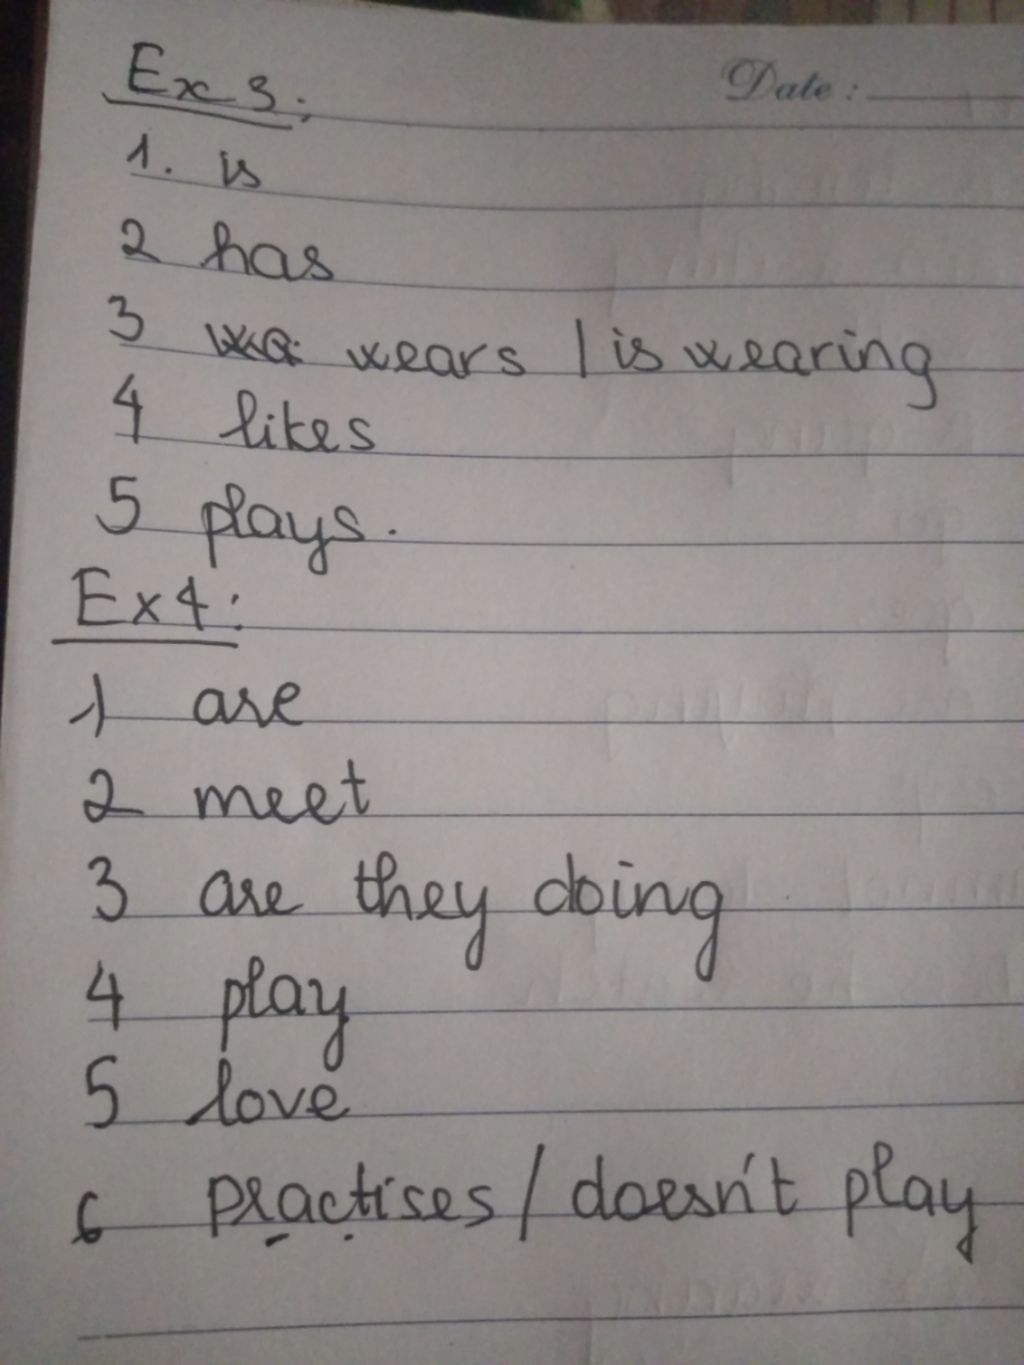 Ex 3:
Date:
1. is
2 has
3 wears / is wearing
4 likes
5 plays.
Ex4:
1) are
2 meet
3 are they doing
4 play
5 love
6 practises / doesn't play